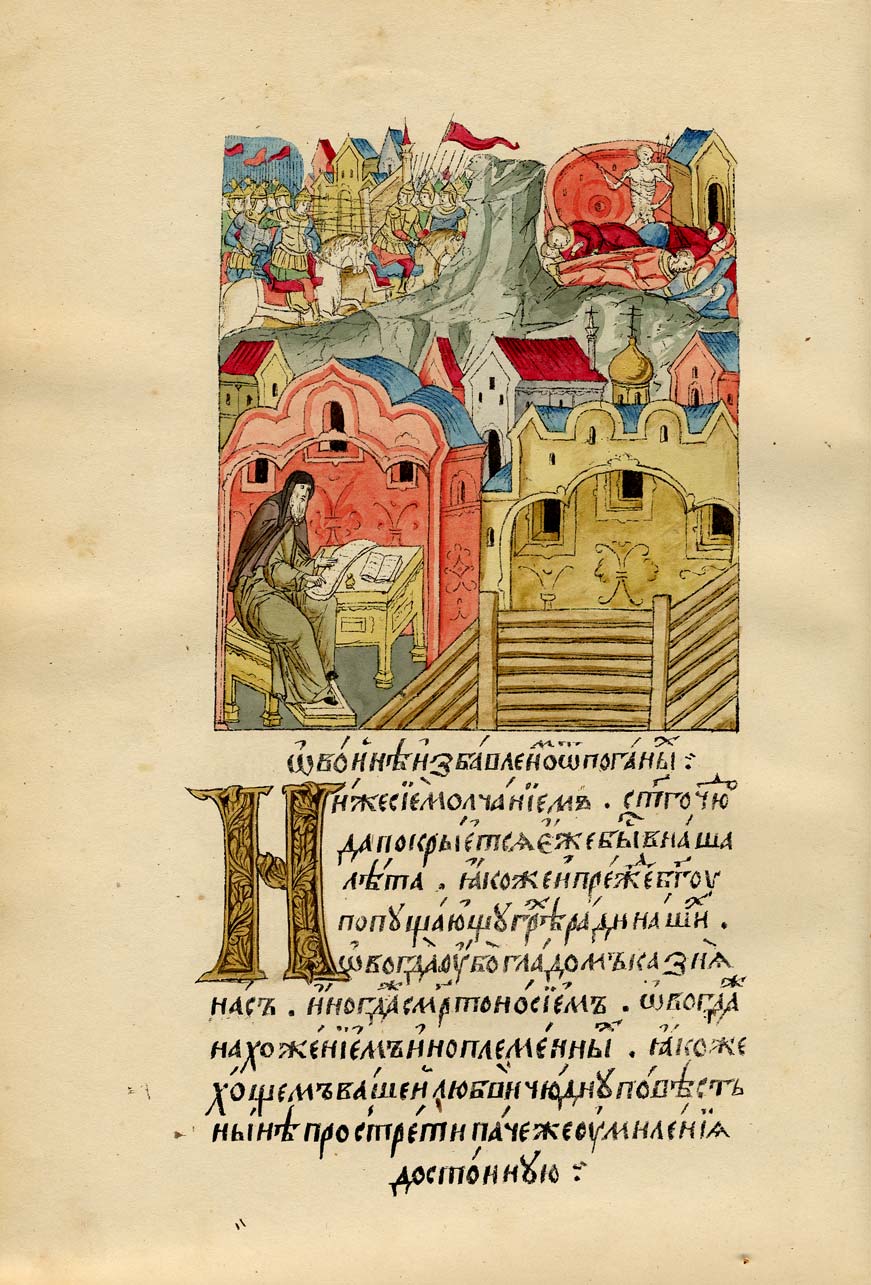 ѡ҆ во́инѣ и҆збавле́нномъ ѿ пога́ныⷯ :
Ни́же сїѐ молча́нїемъ . ст҃го чю́д
да покры́етсѧ є҆́же бы́сть в на́ша
лѣ́та . ꙗ҆́коже и҆ пре́жⷣе бг҃оу
попуща́ющу грѣ́хъ ра́ди на́шиⷯ .
ѡ҆вогда̀ ᲂу҆́бо гла́домъ казнѧ̀
на́съ . и҆ногда́ же сме́ртоно́сїемъ . ѡ҆вогда́ⷤ
нахоже́нїемъ и҆ноплеме́нныⷯ . ꙗ҆́коже
хо́щемъ ва́шей любвѝ чю́дну по́вѣсть
ны́нѣ простре́ти па́че же ᲂу҆миле́нїѧ
досто́йную :